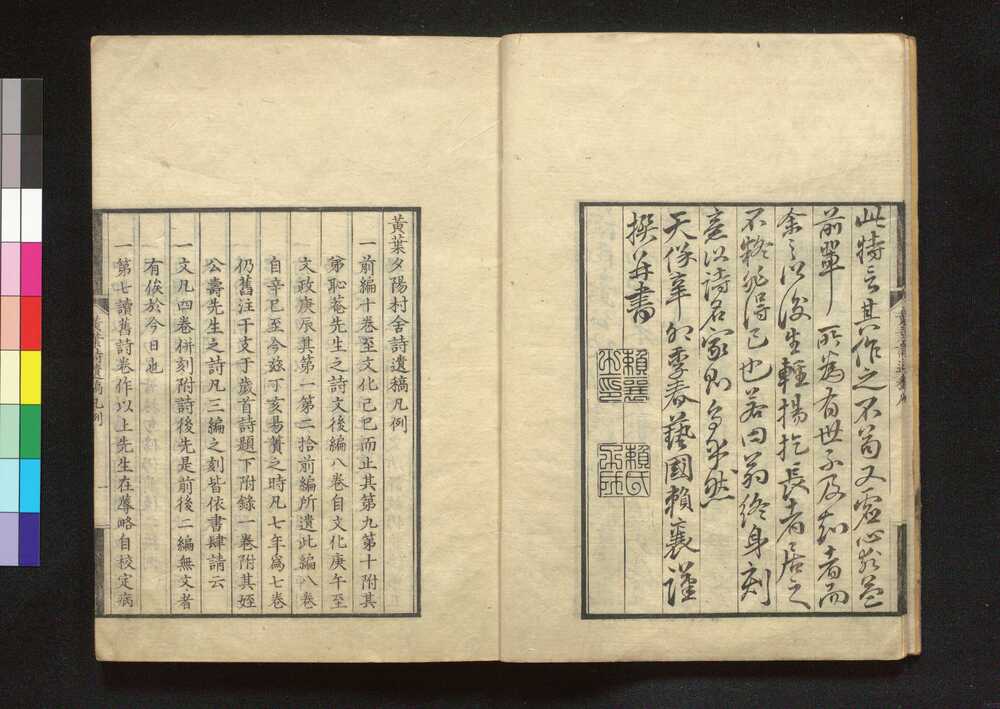 此特言其作之不苟又虛心求益
前輩所為有世不及知者而
余之以後生輕揚扢長者居之
不疑非得已也若曰翁終身刻
意以詩名家則烏乎然
天保辛卯季春藝國賴襄謹
撰并書
賴襄
賴氏子成
黃葉夕陽村舍詩遺稿凡例
一前編十卷至文化己巳而止其第九第十附其
弟恥菴先生之詩文後編八卷自文化庚午至
文政庚辰其第一第二拾前編所遺此編八卷
自辛巳至今茲丁亥易簀之時凡七年爲七卷
仍舊注干支于歲首詩題下附錄一卷附其姪
公壽先生之詩凡三編之刻皆依書肆請云
一文凡四卷併刻附詩後先是前後二編無文者
有俟於今日也
一第七讀舊詩卷作以上先生在蓐略自校定病
黃葉詩遺稿凡例
一